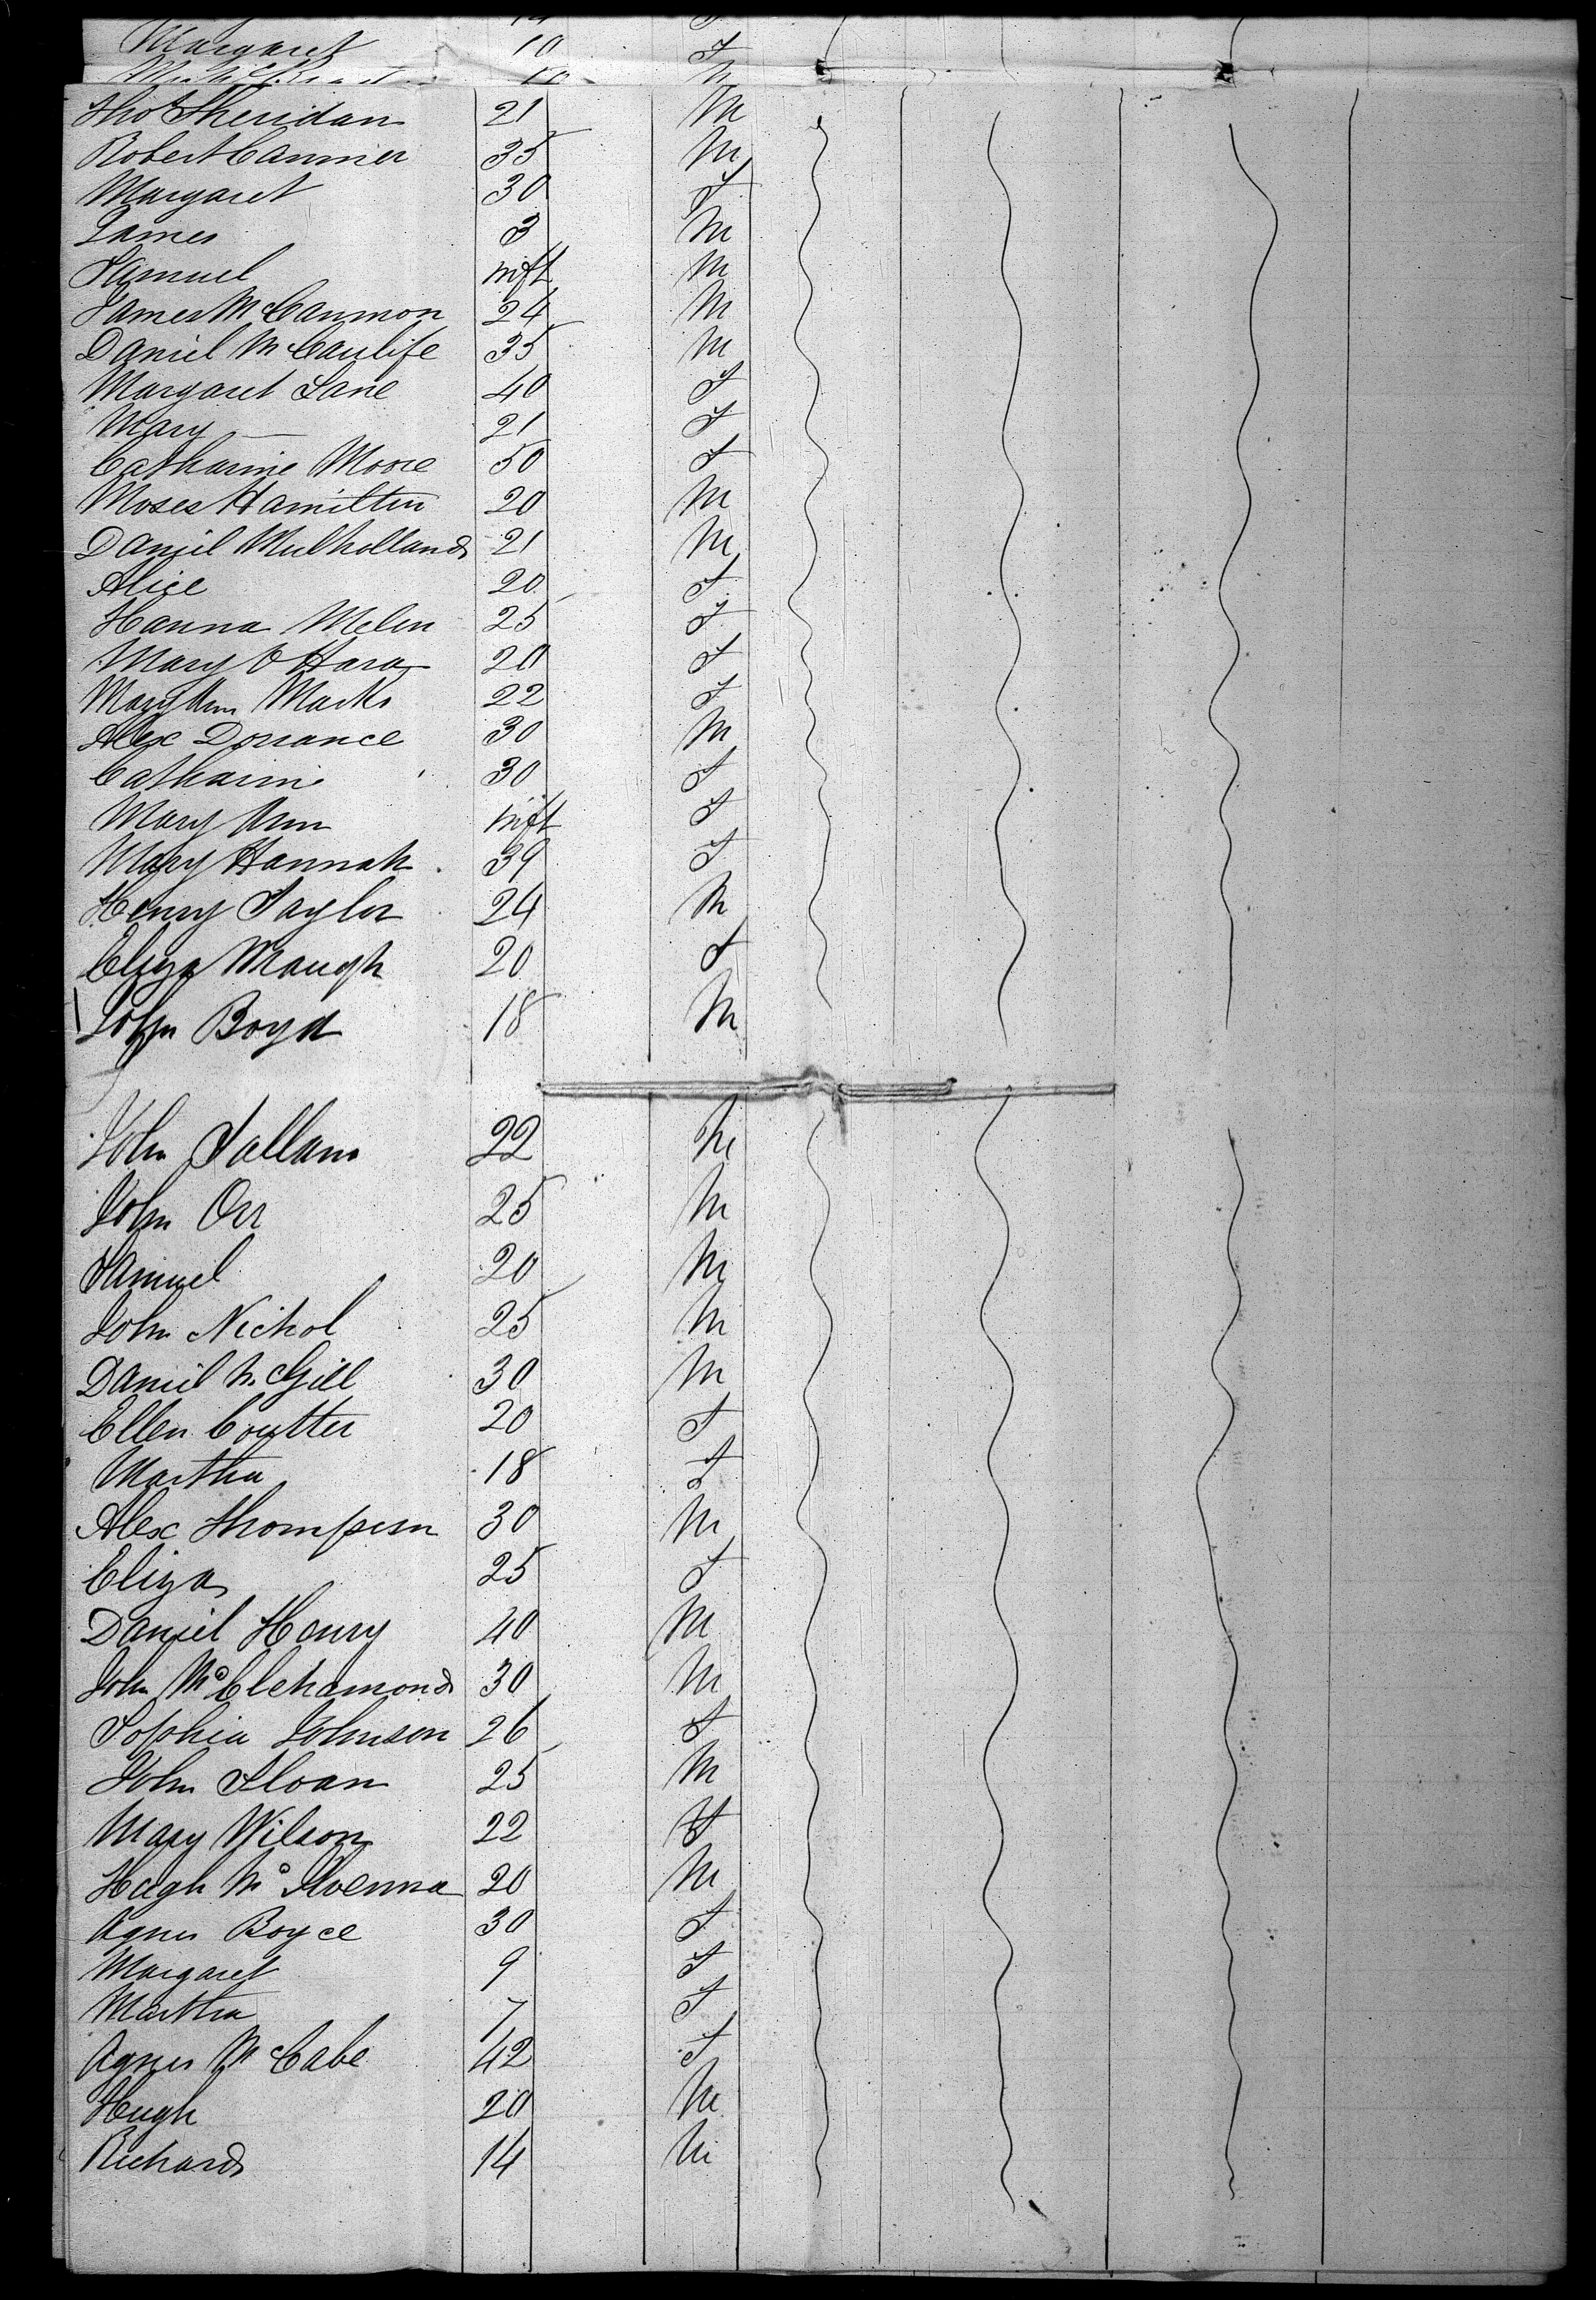 Margaret 10 F
10 M
Thos Sheridan 21 M
Robert Canmer 35 M
Margaret 30 F
James 3 M
Samuel inft M
James McCammon 24 M
Daniel McCaulife 35 M
Margaret Lane 40 F
Mary — 21 F
Catharine Moore 50 F
Moses Hamilton 20 M
Daniel Mulholland 21 M
Alice 20 F
Hanna Melen 25 F
Mary O Hara 20 F
Mary Ann Marks 22 F
Alex Dorrance 30 M
Catharine 30 F
Mary Ann inft F
Mary Hannah 39 F
Henry Taylor 24 M
Eliza Waugh 20 F
John Boyd 18 M
John Tallam 22 M
John Orr 25 M
Samuel 20 M
John Nichol 25 M
Daniel McGill 30 M
Ellen Coulter 20 F
Martha 18 F
Alex Thompson 30 M
Eliza 25 F
Daniel Henry 40 M
John McClehamond 30 M
Sophia Johnson 26 F
John Sloan 25 M
Mary Wilson 22 F
Hugh McIlvenna 20 M
Agnes Boyce 30 F
Margaret 9 F
Martha 7 F
Agnes McCabe 42 F
Hugh 20 M
Richard 14 M